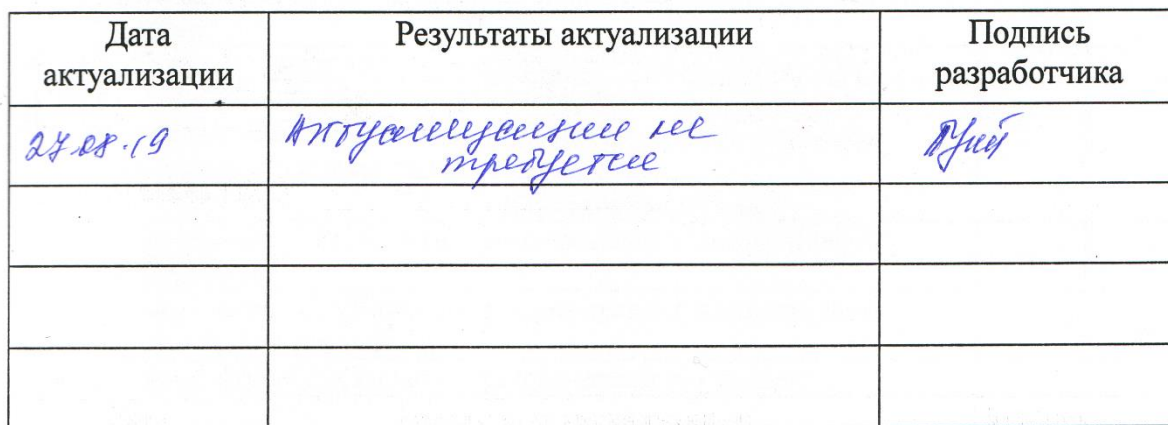 Дата
актуализации
Результаты актуализации
Подпись
разработчика
27.08.19
Актуализации не
требуется